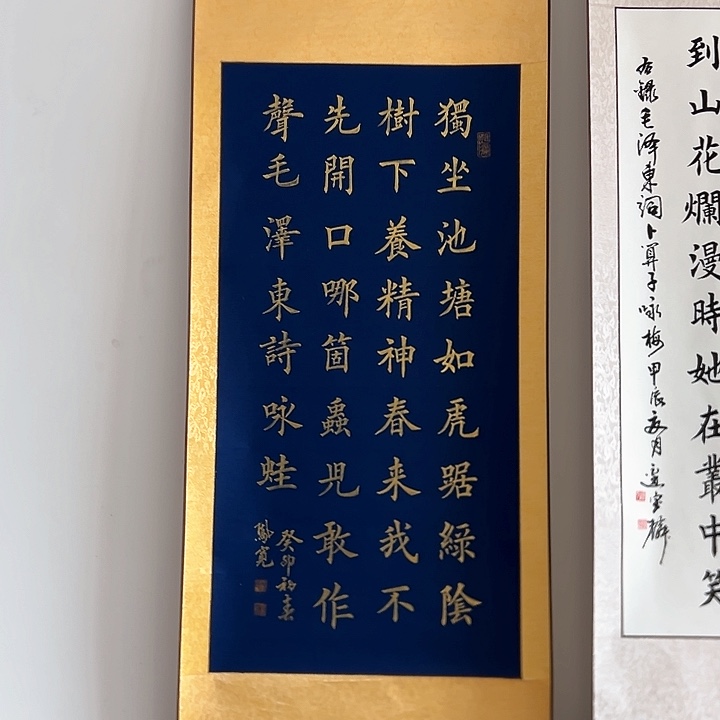 到山花爛漫時她在叢中笑
右錄毛泽東詞卜算子咏梅甲辰夏月
獨坐池塘如虎踞綠陰
樹下養精神春来我不
先開口哪箇蟲児敢作
聲毛澤東詩咏蛙
癸卯初春